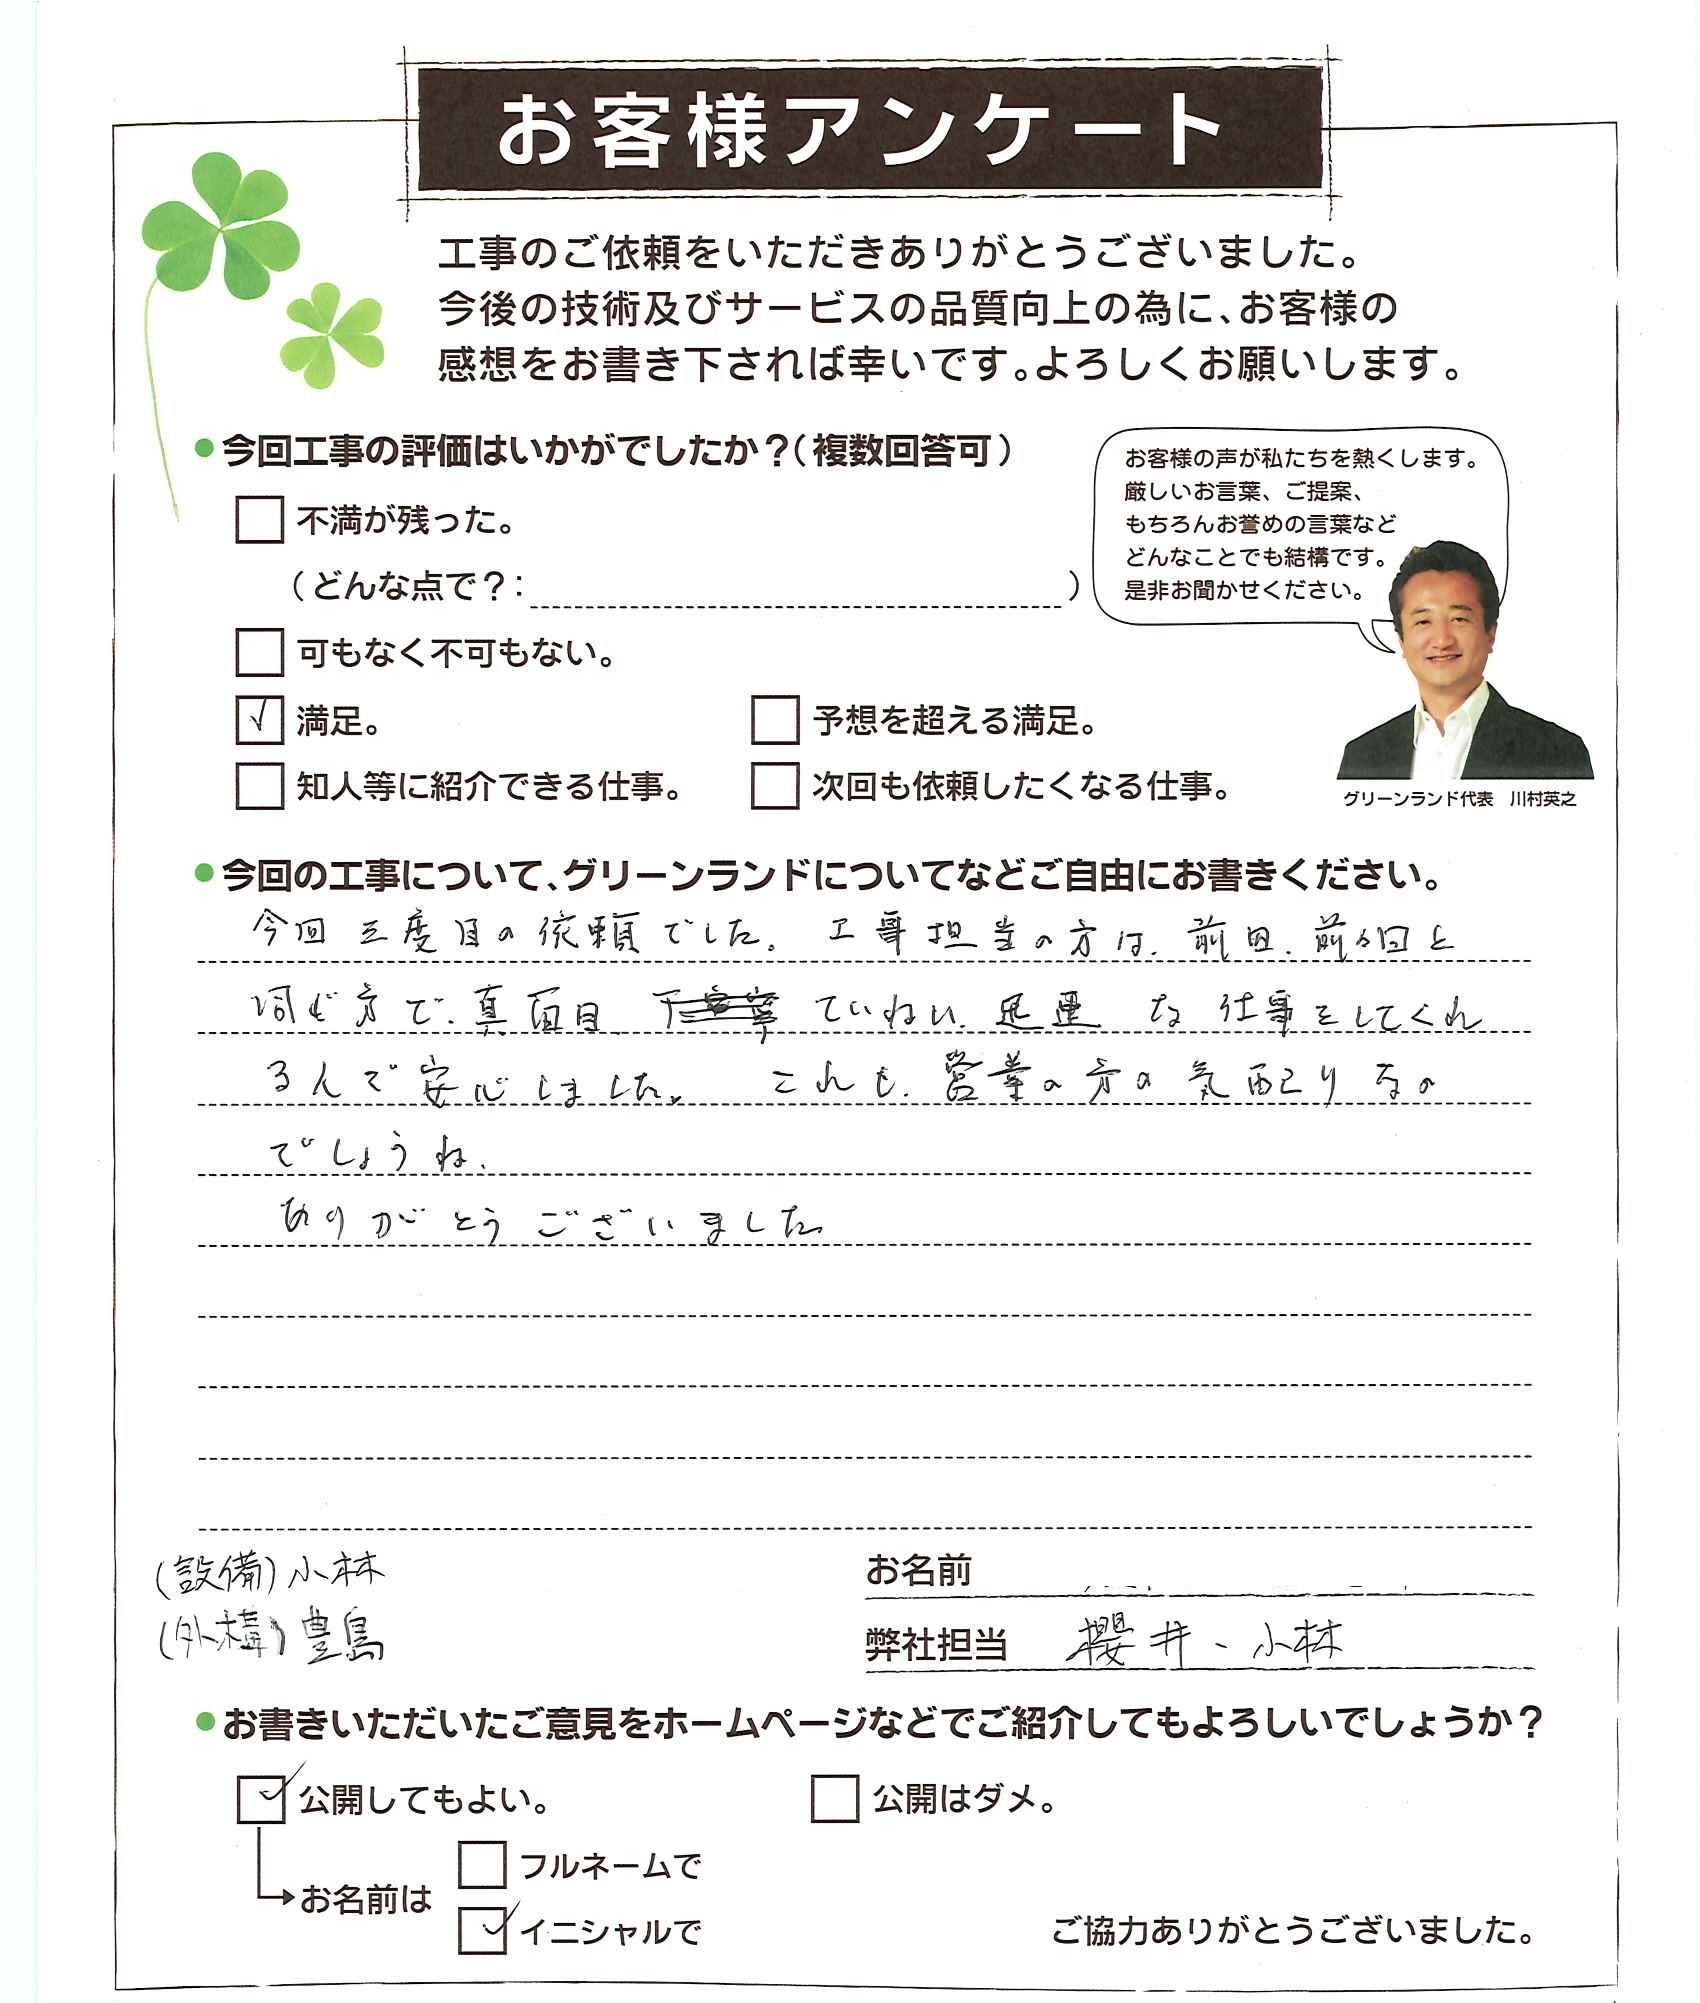 お客様アンケート
工事のご依頼をいただきありがとうございました。
今後の技術及びサービスの品質向上の為に、お客様の
感想をお書き下されば幸いです。よろしくお願いします。
●今回工事の評価はいかがでしたか？（複数回答可）
不満が残った。
（どんな点で？： ）
可もなく不可もない。
満足。
予想を超える満足。
知人等に紹介できる仕事。
次回も依頼したくなる仕事。
お客様の声が私たちを熱くします。
厳しいお言葉、ご提案、
もちろんお誉めの言葉など
どんなことでも結構です。
是非お聞かせください。
グリーンランド代表　川村英之
●今回の工事について、グリーンランドについてなどご自由にお書きください。
今回三度目の依頼でした。工事担当の方は、前回、前々回と
同じ方で、真面目、ていねい、迅速な仕事をしてくれ
るんで安心しました。これも、営業の方の気配りなの
でしょうね、
ありがとうございました
(設備)小林
(外構)豊島
お名前
弊社担当 櫻井、小林
●お書きいただいたご意見をホームページなどでご紹介してもよろしいでしょうか？
公開してもよい。
公開はダメ。
お名前は
フルネームで
イニシャルで
ご協力ありがとうございました。